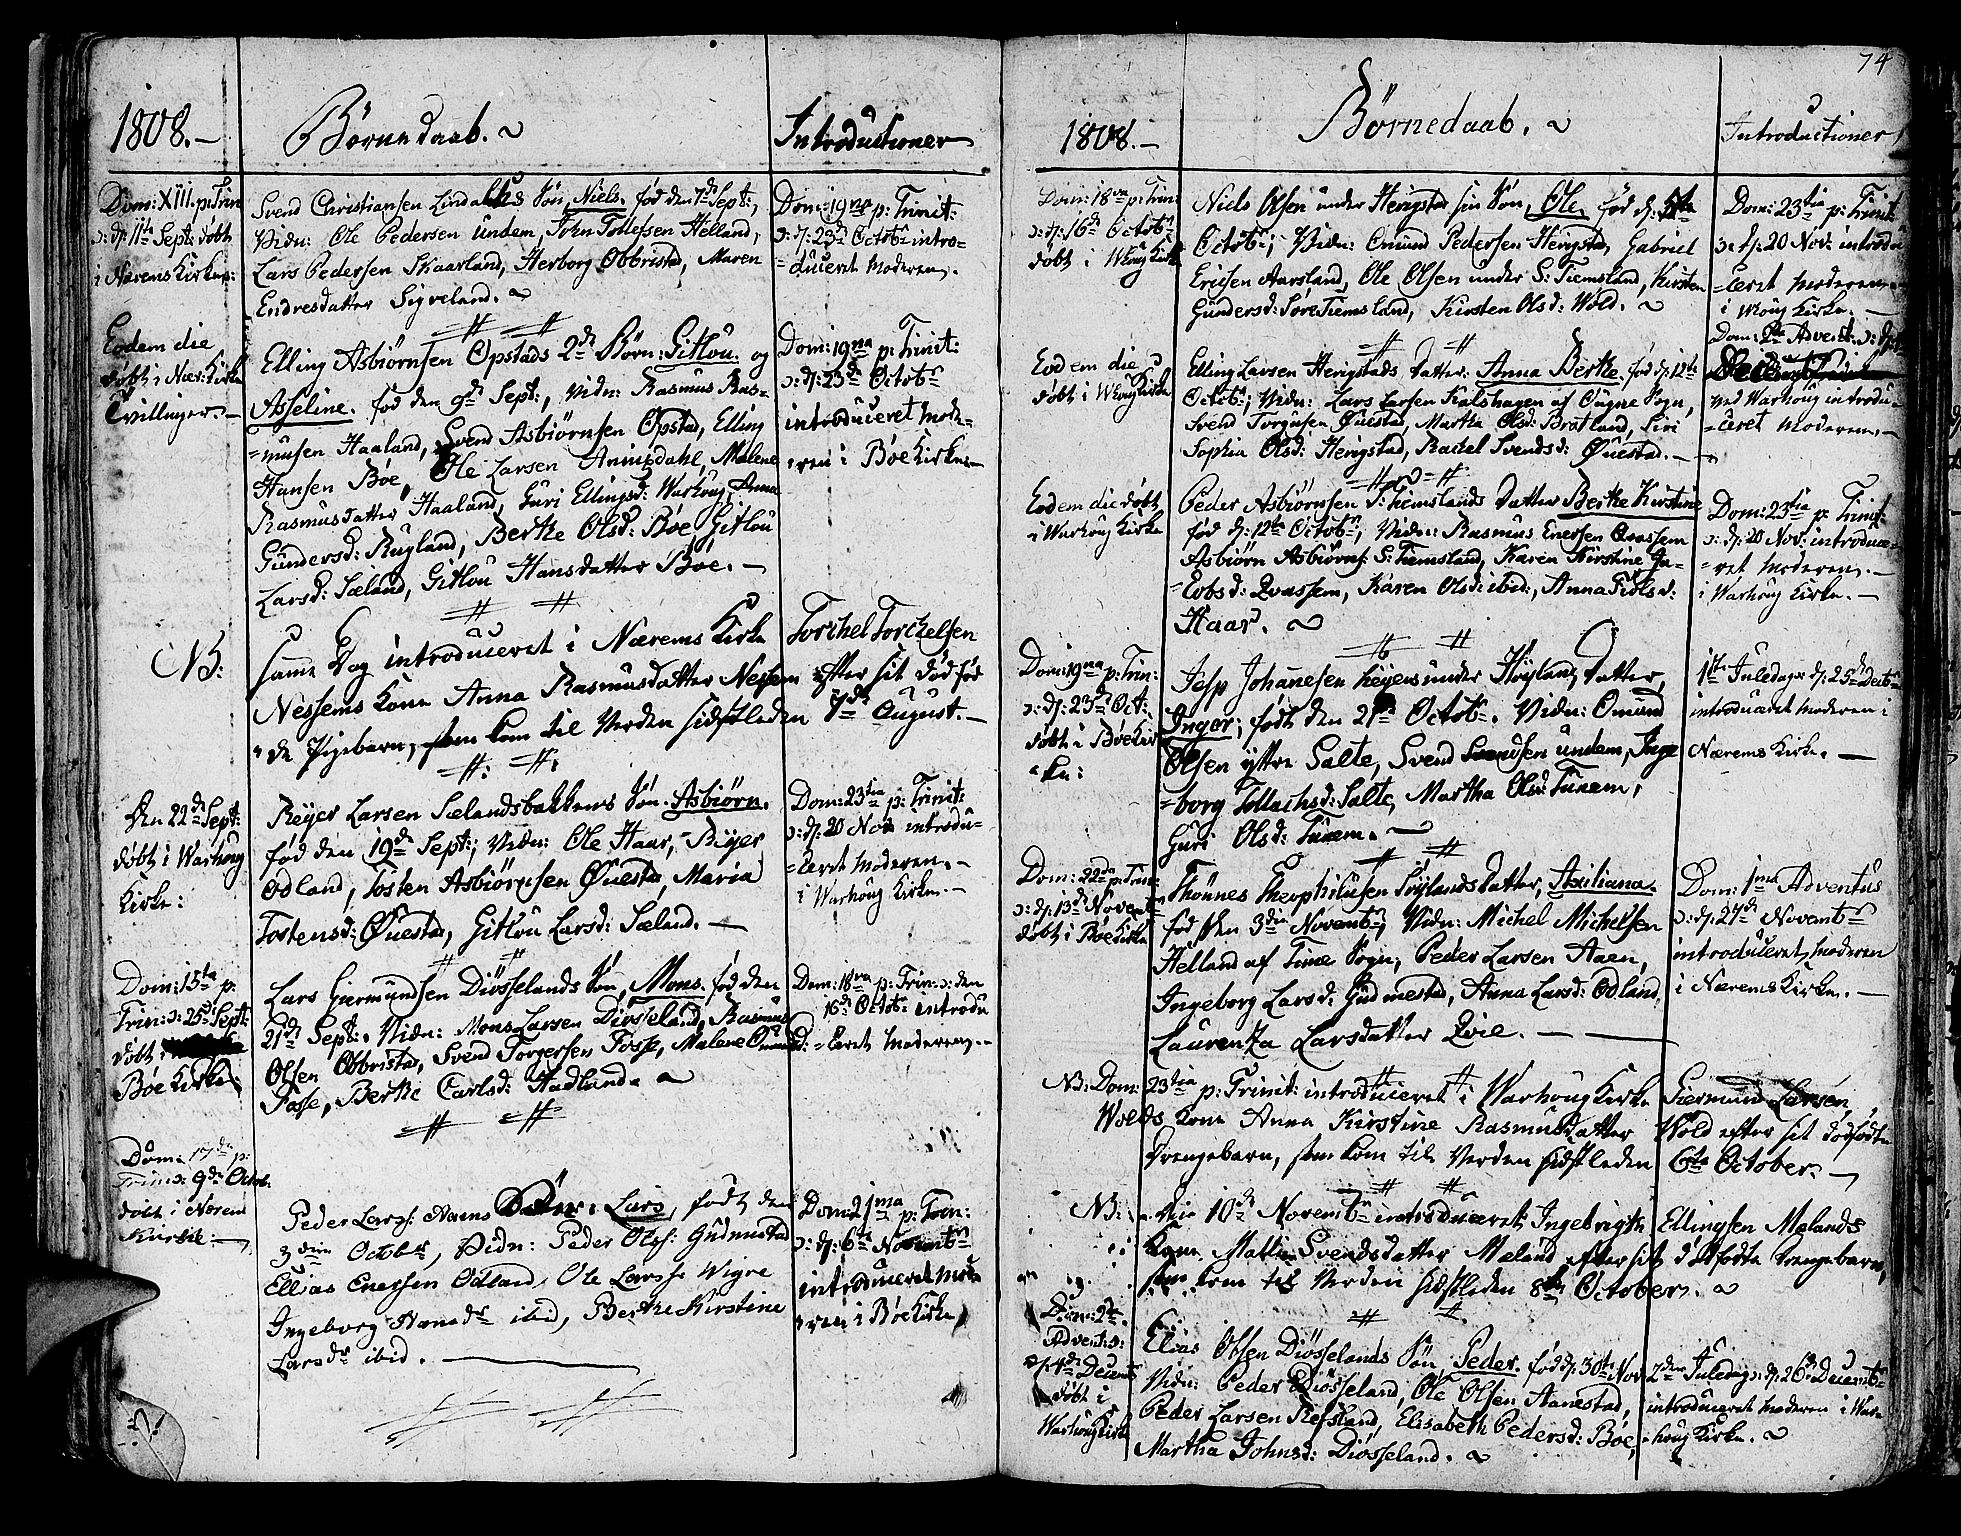 74
1808.-
Börnedaab. ~
Introductioner
Dom: XIII. p: Trin
ɔ: d: 11te Sept: döbt
i Nærems Kirke:
Svend Christiansen Lindals Sön, Niels. föd den 7de Sept:,
Vidn: Ole Pedersen Undem, John Tollefsen Helland,
Lars Pedersen Skaarland, Herborg Obbrista, Maren
Endresdatter Sigveland. ~
Dom: 19na p: Trinit:
ɔ: d: 23de Octobr intro-
=duceret Moderen.
Eodem die
döbt i Nær: Kirke
Tvillinger.-
Elling Asbiörnsen Opstads 2de Börn: Gitlou. og
Asseline. föd den 9de Sept:, Vidn: Rasmus Ras-
=musen Haaland, Svend Asbiörnsen Opsta, Elling
Hansen Böe, Ole Larsen Anniqdahl, Malene
Rasmusdatter Haaland, Guri Ellingsd: Warhoug, Anna
Gundersd: Rugland, Berthe Olsd: Böe, Gitlou
Larsd: Sæland, Gitlou Hansdatter Böe. -
Dom: 19na p: Trinit:
ɔ: d: 23de Octobr
introduceret Mode-
=ren i Böe Kirke.-
NB:
Samme Dag introduceret i Nærems Kirke Torchel Torchelsen
Nessems Kone Anna Rasmusdatter Nessem efter sit dödföd
=de Pigebarn, som kom til Verden sidstleden 7de August.-
Den 22de Sept:
döbt i Warhoug
Kirke:
Reyer Larsen Sælandsbakkens Sön. Asbiörn.
föd den 19de Sept:; Vidn: Ole Haar, Reyer
Odland, Tosten Asbiörnsen Questa, Maria
Tostensd: Questa, Gitlou Larsd: Sæland. -
Dom: 23tia p: Trinit:
ɔ: d: 20 Nov: introdu=
=ceret Moderen.-
i Warhoug Kirke.-
Dom: 15ta p:
Trin: ɔ: 25de Sept:
döbt i
Böe Kirke
Lars Giermundsen Diösselands Sön, Mons. föd den
21de Sept: Vidn: Mons Larsen Diösseland, Rasmus
Olsen Obbrista, Svend Torgersen Fosse, Malene Omunsd:
Fosse, Berthe Carlsd: Hadland. ~
Dom: 18va p: Trin: ɔ: den
16de Octobr introdu
=ceret Moderen.-
Dom: 17de p:
Trin: ɔ: 9de Octob.
döbt i Nærem
Kirke:-
Peder Larss: Nærems Lars, född den
3die Octobr, Vidn: Peder Olss: Gudmestad
Ellias Enersen Odland, Ole Larss: Wigre
Ingeborg ibid, Berthe Kirstine
Larsdr ibid.
Dom: 21ma p: Trin:
ɔ: d: 6te Novembr
introduceret Mode
=ren i Böe Kirke
1808.-
Börnedaab. ~
Introductioner
Dom: 18va p: Trin:
ɔ: d: 16de Octobr
döbt i Whoug Kirke
Niels Olsen under Herigsta sin Sön, Ole, föd d: 5te
Octobr; Vidn: Omund Pedersen Herigsta, Gabriel
Ericsen Aarsland, Ole Olsen under S: Tiemsland, Kirsten
Gundersd: Söre Tiemsland, Kirsten Olsd: Wold. ~
Dom: 23tia p: Trinit:
ɔ: d: 20 Nov: introdu
=ceret Moderen
i Whoug Kirke. -
Eodem die
döbt i Whoug Kirke
Elling Larsen Herigstads Datter. Anna Berthe. föd d: 12te
Octobr; Vidn: Lars Larsen Fialshagen af Ougne Sogn,
Svend Torgusen Questa, Martha Olsd: Bratland, Siri
Sophia Olsd: Herigstad, Rachel Svendsd: Questad. -
Dom: 2da Advent: ɔ: d:
ved Warhoug introdu=
=ceret Moderen.-
Eodem die döbt
i Warhoug Kirke
Peder Asbiörnsen S: Tiemslands Datter Berthe Kirstine
föd d: 12te Octobr; Vidn: Rasmus Enersen Qvassem
Asbiörn Asbiörns: S: Tiemsland, Karen Kirstine Ja-
=cobsd: Qvassem, Karen Olsd: ibid:, Anna Fiölsd:
Haar. ~
Dom: 23tia p: Trinit:
ɔ: d: 20 Nov: introduce=
=ret Moderen.-
i Warhoug Kirke.-
Dom: 19na p: Trin:
ɔ: d: 23de Oct:
döbt i Böe Kir
=ke:
Jesp Johanesen Leyers under Höyland, Datter,
Inger; född den 21de Octobr. Vidn: Omund
Olsen yttre Salte, Svend Svendsen Undem, Inge
=borg Tollachsd: Salte, Martha Olsd: Tunem,
Guri Olsd: Tunem. -
1ste Juledag: d: 25de Decbr
introduceret Moderen i
Nærems Kirke. -
Dom: 22da p: Trin:
ɔ: d: 13de Novembr
döbt i Böe Kirke
Thönnes Theophilusen Döylands Datter, Axiliana
föd den 3die Novembr; Vidn: Michel Michelsen
Helland af Time Sogn, Peder Larsen Aaen,
Ingeborg Larsd: Gudmesta, Anna Larsd: Odland,
Laurentza Larsdatter Qvie. -
Dom: 1ma Adventus
ɔ: d: 27de Novembr
introduceret Moderen
i Nærems Kirke. -
NB: Dom: 23tia p: Trinit: introduceret i Warhoug Kirke Giermund Larsen
Wolds Kone Anna Kirstine Rasmusdatter Wold efter sit dödfödte
Drengebarn, som kom til Verden sidstleden 6te October. -
NB: Den 10de Novembr introduceret Ingebrigth Ellingsen Mælands
Kone Mallin Svendsdatter Mæland efter sit dödfödte Drengebarn,
som kom til Verden sidstleden 8de October. ~
Dom: 2da
Advent: ɔ:
d: 4de Decemb
döbt i
Warhoug Kirke
Elias Olsen Diösselands Sön, Peder. föd d: 30te Nov:
Vidn: Peder Diösseland, Ole Olsen Aanestad,
Peder Larsen Refsland, Elisabeth Pedersd: Böe,
Martha Johnsd: Diösseland. ~
2den Juledag: d: 26de Decemb=
introduceret Moderen i War=
=houg Kirke. ~